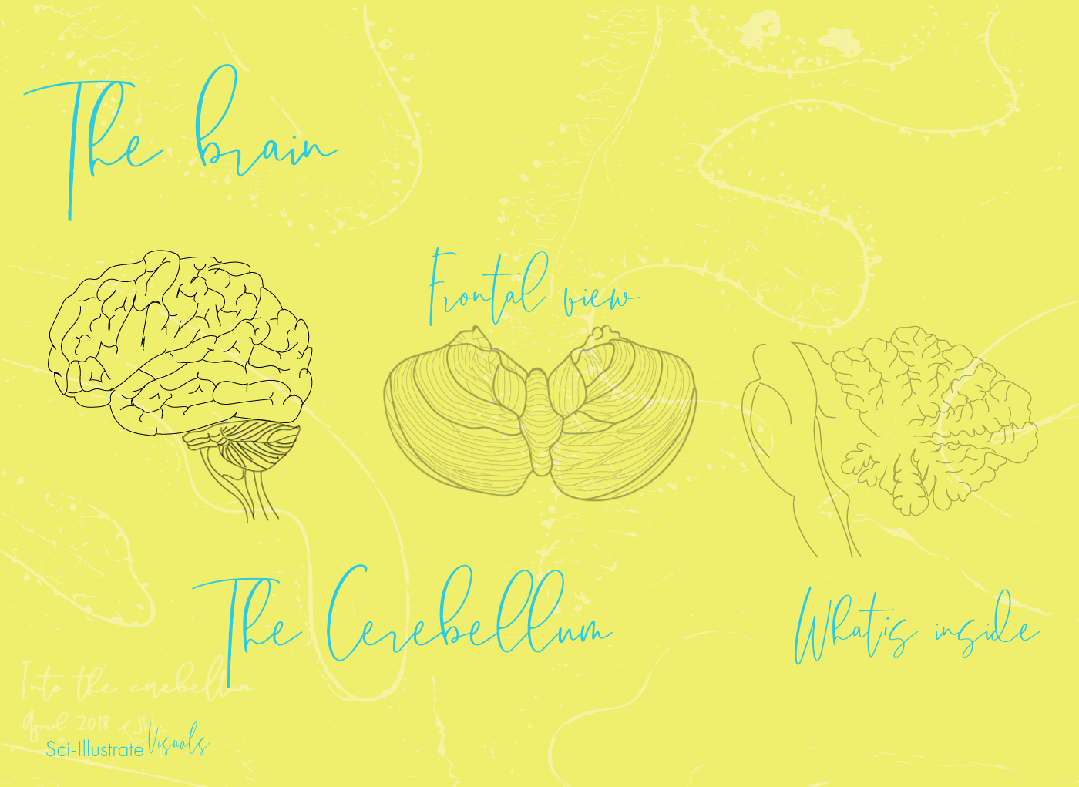 The brain
Frontal view
The Cerebellum
What is inside
Into the cerebellum
April 2018
Sci-Illustrate Visuals